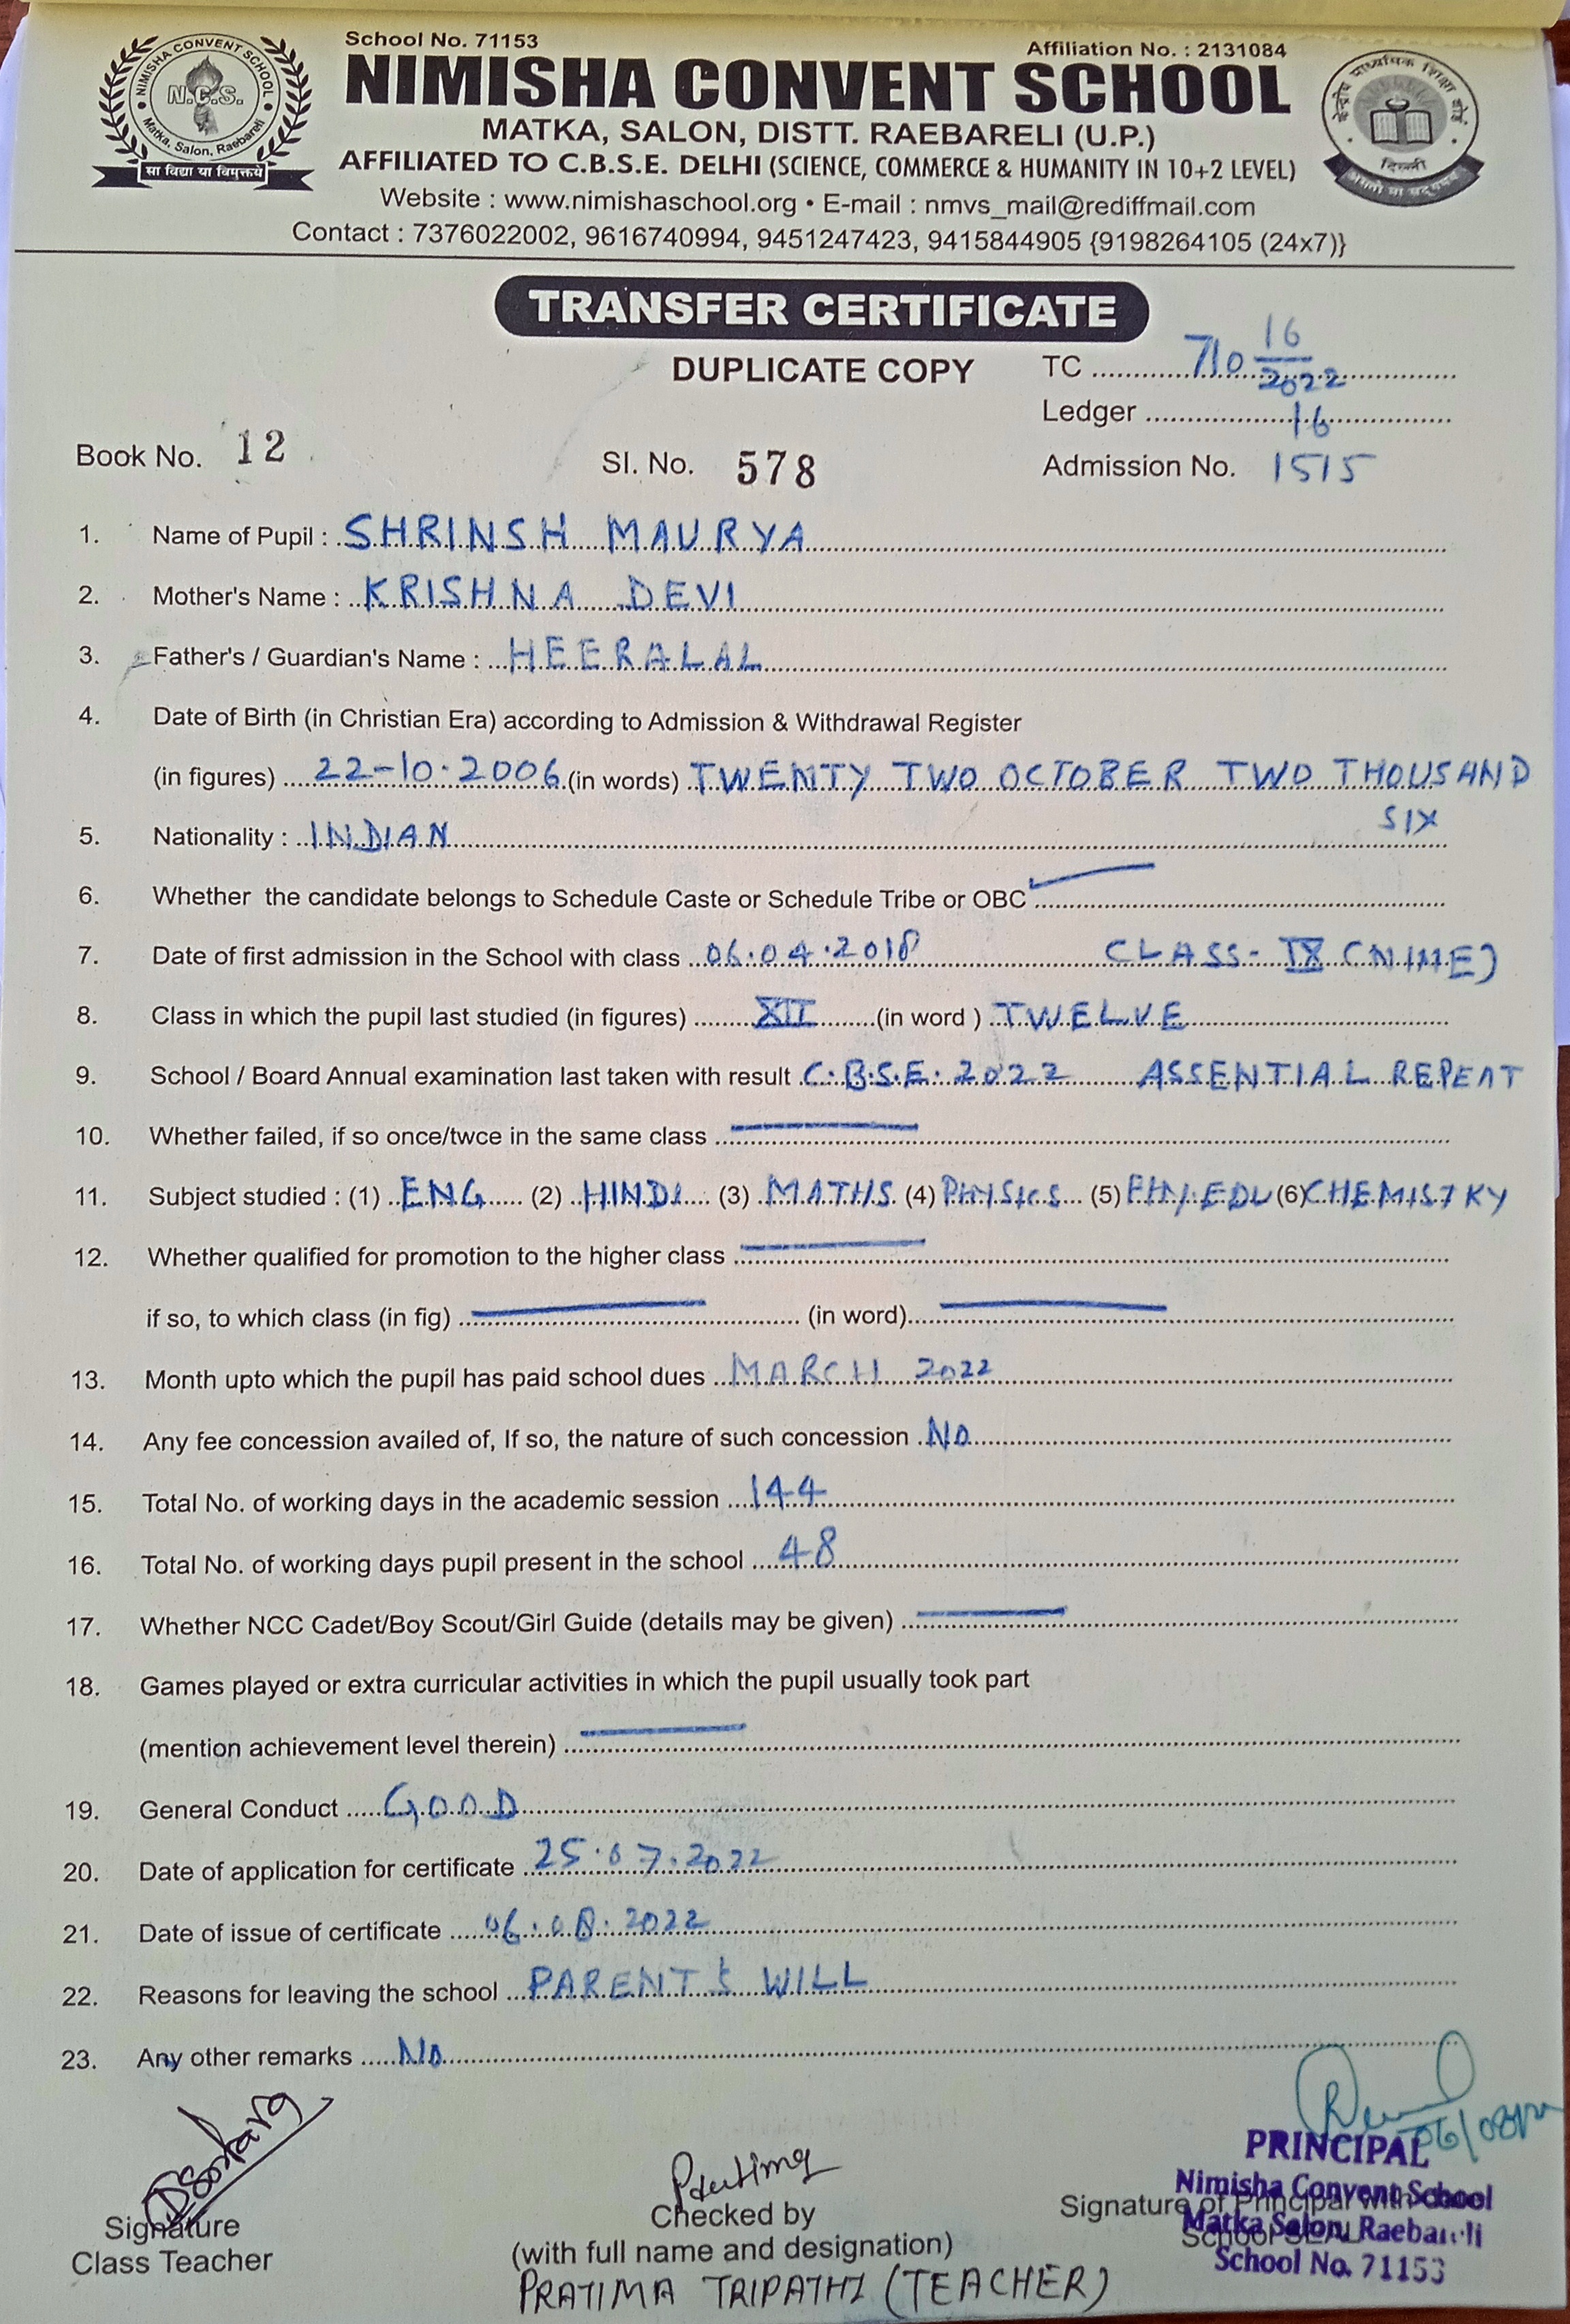 School No. 71153
Affiliation No. : 2131084
NIMISHA CONVENT SCHOOL
N.C.S.
Matka, Salon, Raebareli
सा विद्या या विमुक्तये
केन्द्रीय माध्यमिक शिक्षा बोर्ड
दिल्ली
असतो मा सद्गमय
NIMISHA CONVENT SCHOOL
MATKA, SALON, DISTT. RAEBARELI (U.P.)
AFFILIATED TO C.B.S.E. DELHI (SCIENCE, COMMERCE & HUMANITY IN 10+2 LEVEL)
Website : www.nimishaschool.org • E-mail : nmvs_mail@rediffmail.com
Contact : 7376022002, 9616740994, 9451247423, 9415844905 {9198264105 (24x7)}
TRANSFER CERTIFICATE
DUPLICATE COPY
TC 710 16/2022
Ledger 16
Book No. 12 Sl. No. 578 Admission No. 1515
1. Name of Pupil : SHRINSH MAURYA
2. Mother's Name : KRISHNA DEVI
3. Father's / Guardian's Name : HEERALAL
4. Date of Birth (in Christian Era) according to Admission & Withdrawal Register
(in figures) 22-10-2006 (in words) TWENTY TWO OCTOBER TWO THOUSAND
SIX
5. Nationality : INDIAN
6. Whether the candidate belongs to Schedule Caste or Schedule Tribe or OBC
7. Date of first admission in the School with class 06.04.2018 CLASS- IX (NINE)
8. Class in which the pupil last studied (in figures) XII (in word ) TWELVE
9. School / Board Annual examination last taken with result C.B.S.E. 2022 ASSENTIAL REPEAT
10. Whether failed, if so once/twce in the same class
11. Subject studied : (1) ENG (2) HINDI (3) MATHS (4) PHYSICS (5) PHY. EDU (6) CHEMISTRY
12. Whether qualified for promotion to the higher class
if so, to which class (in fig) (in word)
13. Month upto which the pupil has paid school dues MARCH 2022
14. Any fee concession availed of, If so, the nature of such concession NO
15. Total No. of working days in the academic session 144
16. Total No. of working days pupil present in the school 48
17. Whether NCC Cadet/Boy Scout/Girl Guide (details may be given)
18. Games played or extra curricular activities in which the pupil usually took part
(mention achievement level therein)
19. General Conduct GOOD
20. Date of application for certificate 25.07.2022
21. Date of issue of certificate 06.08.2022
22. Reasons for leaving the school PARENT'S WILL
23. Any other remarks NO
Pratima
Signature
Class Teacher
Checked by
(with full name and designation)
PRATIMA TRIPATHI (TEACHER)
PRINCIPAL
Nimisha Convent School
Signature of Principal with
Matka Salon, Raebareli
School SEAL
School No. 71153